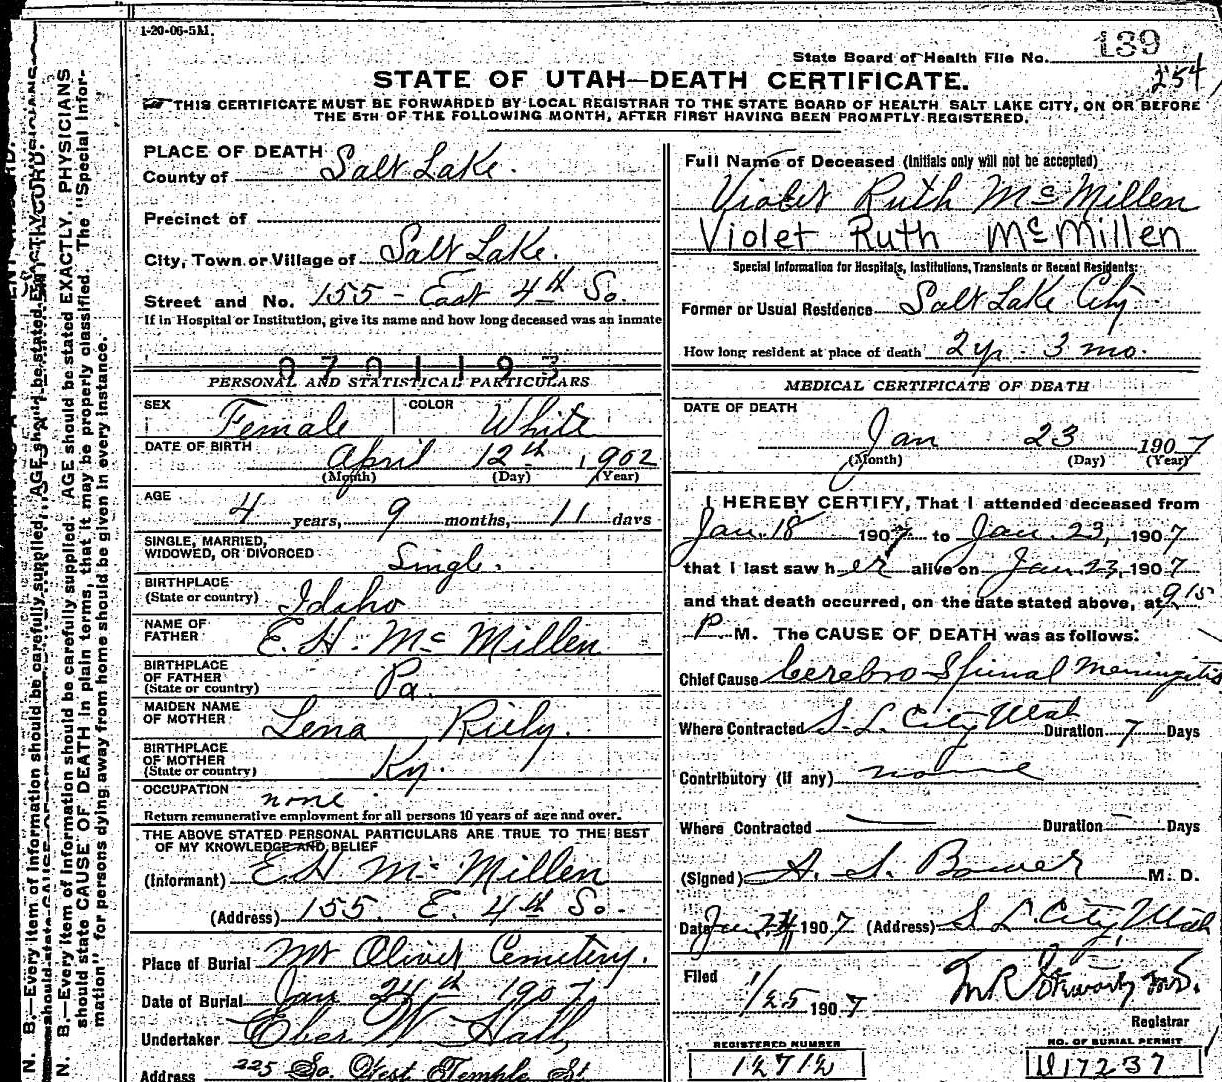 1-20-06-5M.
139
State Board of Health File No.
254
STATE OF UTAH—DEATH CERTIFICATE.
THIS CERTIFICATE MUST BE FORWARDED BY LOCAL REGISTRAR TO THE STATE BOARD OF HEALTH, SALT LAKE CITY, ON OR BEFORE
THE 5TH OF THE FOLLOWING MONTH, AFTER FIRST HAVING BEEN PROMPTLY REGISTERED.
PLACE OF DEATH
County of Salt Lake.
Precinct of
City, Town or Village of Salt Lake.
Street and No. 155 - East 4th So.
If in Hospital or Institution, give its name and how long deceased was an inmate
0701193
PERSONAL AND STATISTICAL PARTICULARS
SEX Female COLOR White
DATE OF BIRTH April 12th, 1902
(Month) (Day) (Year)
AGE 4 years, 9 months, 11 days
SINGLE, MARRIED,
WIDOWED, OR DIVORCED Single.
BIRTHPLACE
(State or country) Idaho
NAME OF
FATHER E. H. McMillen
BIRTHPLACE
OF FATHER
(State or country) Pa.
MAIDEN NAME
OF MOTHER Lena Riely.
BIRTHPLACE
OF MOTHER
(State or country) Ky.
OCCUPATION none
Return remunerative employment for all persons 10 years of age and over.
THE ABOVE STATED PERSONAL PARTICULARS ARE TRUE TO THE BEST
OF MY KNOWLEDGE AND BELIEF
(Informant) E H McMillen
(Address) 155. E. 4th So.
Place of Burial Mt Olivet Cemetery.
Date of Burial Jan 24th 1907
Undertaker Eber W Hall,
Address 225 So. West Temple St
Full Name of Deceased (Initials only will not be accepted)
Violet Ruth McMillen
Violet Ruth McMillen
Special Information for Hospitals, Institutions, Transients or Recent Residents:
Former or Usual Residence Salt Lake City
How long resident at place of death 2 yr. 3 mo.
MEDICAL CERTIFICATE OF DEATH
DATE OF DEATH
Jan 23 1907
(Month) (Day) (Year)
I HEREBY CERTIFY, That I attended deceased from
Jan. 18 1907 to Jan. 23, 1907
that I last saw her alive on Jan 23, 1907
and that death occurred, on the date stated above, at 9 15
P. M. The CAUSE OF DEATH was as follows:
Chief Cause Cerebro-Spinal Meningitis
Where Contracted S. L. City Utah Duration 7 Days
Contributory (if any) none
Where Contracted Duration Days
(Signed) A. S. Bower M. D.
Date Jan 24 1907 (Address) S L City, Utah
Filed 1/25 1907
Registrar
REGISTERED NUMBER
12712
NO. OF BURIAL PERMIT
17237
N. B.—Every item of information should be carefully supplied. AGE should be stated EXACTLY. PHYSICIANS
should state CAUSE OF DEATH in plain terms, that it may be properly classified. The "Special Infor-
mation" for persons dying away from home should be given in every instance.